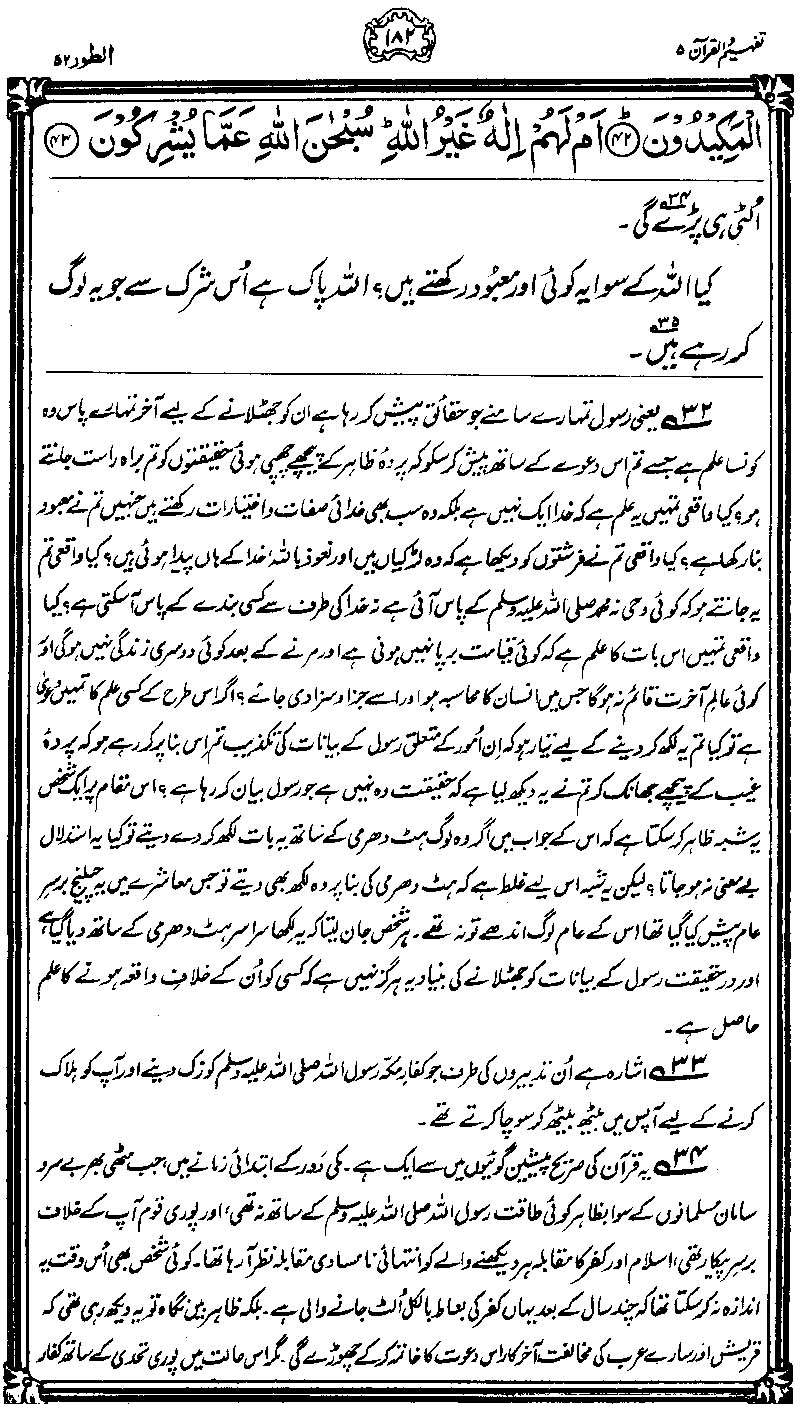 تفہیم القرآن ۵
۱۸۲
الطور ۵۲
الْمَكِيْدُوْنَ ﴿۴۲﴾ اَمْ لَهُمْ اِلٰهٌ غَيْرُ اللّٰهِ ؕ سُبْحٰنَ اللّٰهِ عَمَّا يُشْرِكُوْنَ ﴿۴۳﴾
اُلٹی ہی پڑے گی۳۴۔
کیا اللہ کے سوا یہ کوئی اور معبود رکھتے ہیں؟ اللہ پاک ہے اُس شرک سے جو یہ لوگ
کر رہے ہیں۳۵۔
۳۲ یعنی رسول تمہارے سامنے جو حقائق پیش کر رہا ہے ان کو جھٹلانے کے لیے آخر تمہارے پاس وہ
کونسا علم ہے جسے تم اس دعوے کے ساتھ پیش کر سکو کہ پردۂ ظاہر کے پیچھے چھپی ہوئی حقیقتوں کو تم براہ راست جانتے
ہو؟ کیا واقعی تمہیں یہ علم ہے کہ خدا ایک نہیں ہے بلکہ وہ سب بھی خدائی صفات و اختیارات رکھتے ہیں جنہیں تم نے معبود
بنا رکھا ہے؟ کیا واقعی تم نے فرشتوں کو دیکھا ہے کہ وہ لڑکیاں ہیں اور نعوذ باللہ، خدا کے ہاں پیدا ہوئی ہیں؟ کیا واقعی تم
یہ جانتے ہو کہ کوئی وحی نہ محمد صلی اللہ علیہ وسلم کے پاس آئی ہے نہ خدا کی طرف سے کسی بندے کے پاس آسکتی ہے؟ کیا
واقعی تمہیں اس بات کا علم ہے کہ کوئی قیامت برپا نہیں ہونی ہے اور مرنے کے بعد کوئی دوسری زندگی نہیں ہوگی اور
کوئی عالم آخرت قائم نہ ہوگا جس میں انسان کا محاسبہ ہو اور اسے جزا و سزا دی جائے؟ اگر اس طرح کے کسی علم کا تمہیں دعویٰ
ہے تو کیا تم یہ لکھ کر دینے کے لیے تیار ہو کہ اِن اُمور کے متعلق رسول کے بیانات کی تکذیب تم اِس بنا پر کر رہے ہو کہ پردۂ
غیب کے پیچھے جھانک کر تم نے یہ دیکھ لیا ہے کہ حقیقت وہ نہیں ہے جو رسول بیان کر رہا ہے؟ اس مقام پر ایک شخص
یہ شبہ ظاہر کر سکتا ہے کہ اس کے جواب میں اگر وہ لوگ ہٹ دھرمی کے ساتھ یہ بات لکھ کر دے دیتے تو کیا یہ استدلال
بے معنی نہ ہو جاتا؟ لیکن یہ شبہ اس لیے غلط ہے کہ ہٹ دھرمی کی بنا پر وہ لکھ بھی دیتے تو جس معاشرے میں یہ چیلنج برسرِ
عام پیش کیا گیا تھا اس کے عام لوگ اندھے تو نہ تھے۔ ہر شخص جان لیتا کہ یہ لکھا سراسر ہٹ دھرمی کے ساتھ دیا گیا ہے
اور درحقیقت رسول کے بیانات کو جھٹلانے کی بنیاد یہ ہرگز نہیں ہے کہ کسی کو اُن کے خلاف واقعہ ہونے کا علم
حاصل ہے۔
۳۳ اشارہ ہے اُن تدبیروں کی طرف جو کفارِ مکہ رسول اللہ صلی اللہ علیہ وسلم کو زک دینے اور آپ کو ہلاک
کرنے کے لیے آپس میں بیٹھ بیٹھ کر سوچا کرتے تھے۔
۳۴ یہ قرآن کی صریح پیشین گوئیوں میں سے ایک ہے۔ مکی دَور کے ابتدائی زمانے میں، جب مٹھی بھر بے سرو
سامان مسلمانوں کے سوا بظاہر کوئی طاقت رسول اللہ صلی اللہ علیہ وسلم کے ساتھ نہ تھی، اور پوری قوم آپ کے خلاف
برسرِ پیکار تھی، اسلام اور کفر کا مقابلہ ہر دیکھنے والے کو انتہائی نامساوی مقابلہ نظر آرہا تھا۔ کوئی شخص بھی اُس وقت یہ
اندازہ نہ کر سکتا تھا کہ چند سال کے بعد یہاں کفر کی بساط بالکل اُلٹ جانے والی ہے۔ بلکہ ظاہر بیں نگاہ تو یہ دیکھ رہی تھی کہ
قریش اور سارے عرب کی مخالفت آخر کار اس دعوت کا خاتمہ کر کے چھوڑے گی۔ مگر اس حالت میں پوری تحدی کے ساتھ کفار